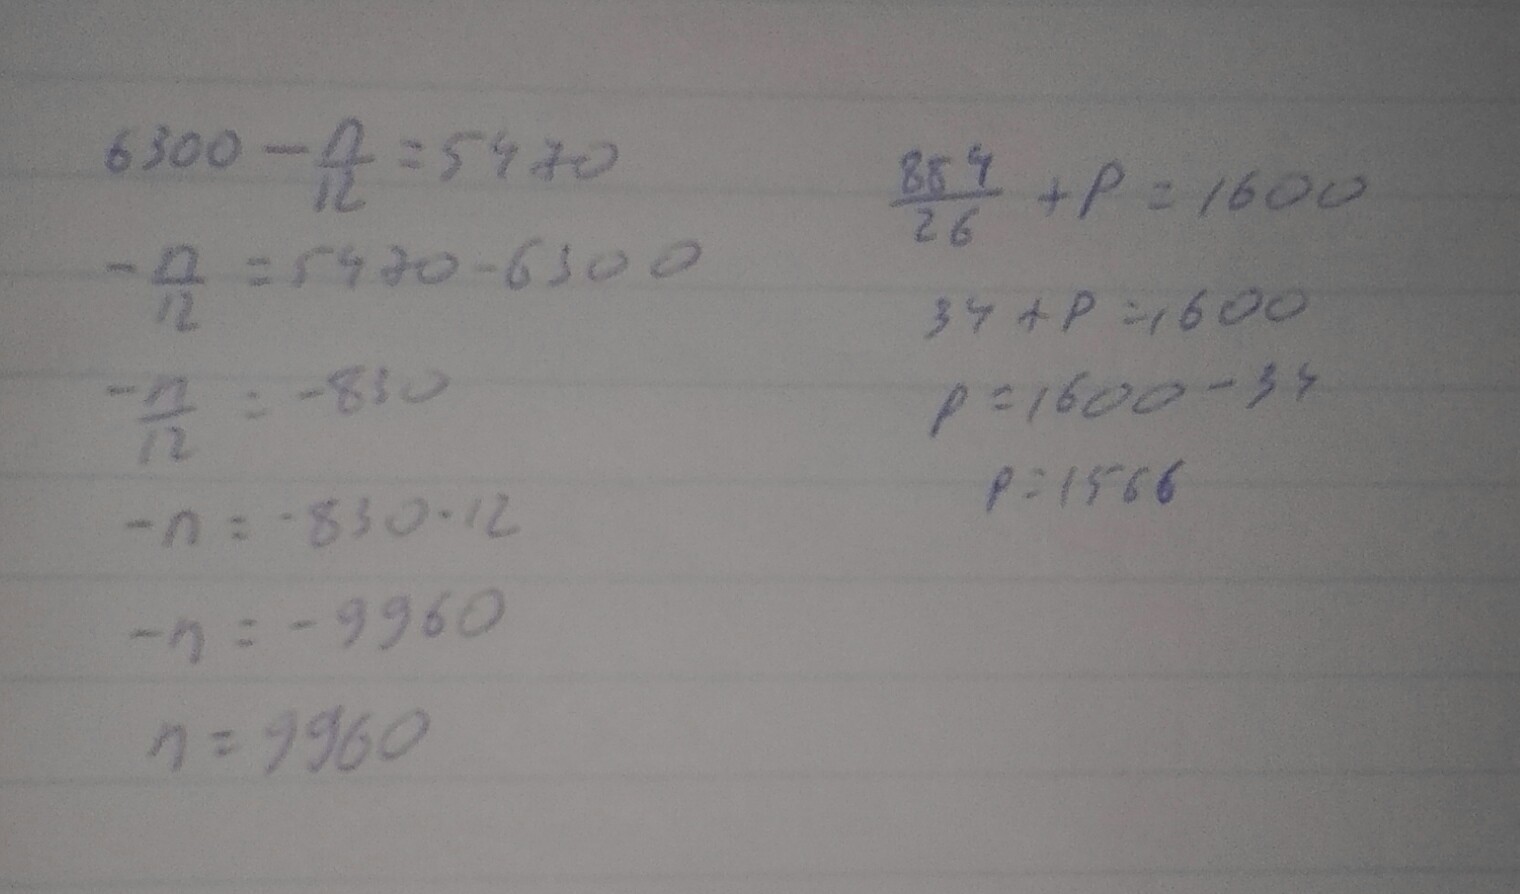 6300 - n/12 = 5470
-n/12 = 5470 - 6300
-n/12 = -830
-n = -830 · 12
-n = -9960
n = 9960
884/26 + P = 1600
34 + P = 1600
P = 1600 - 34
P = 1566